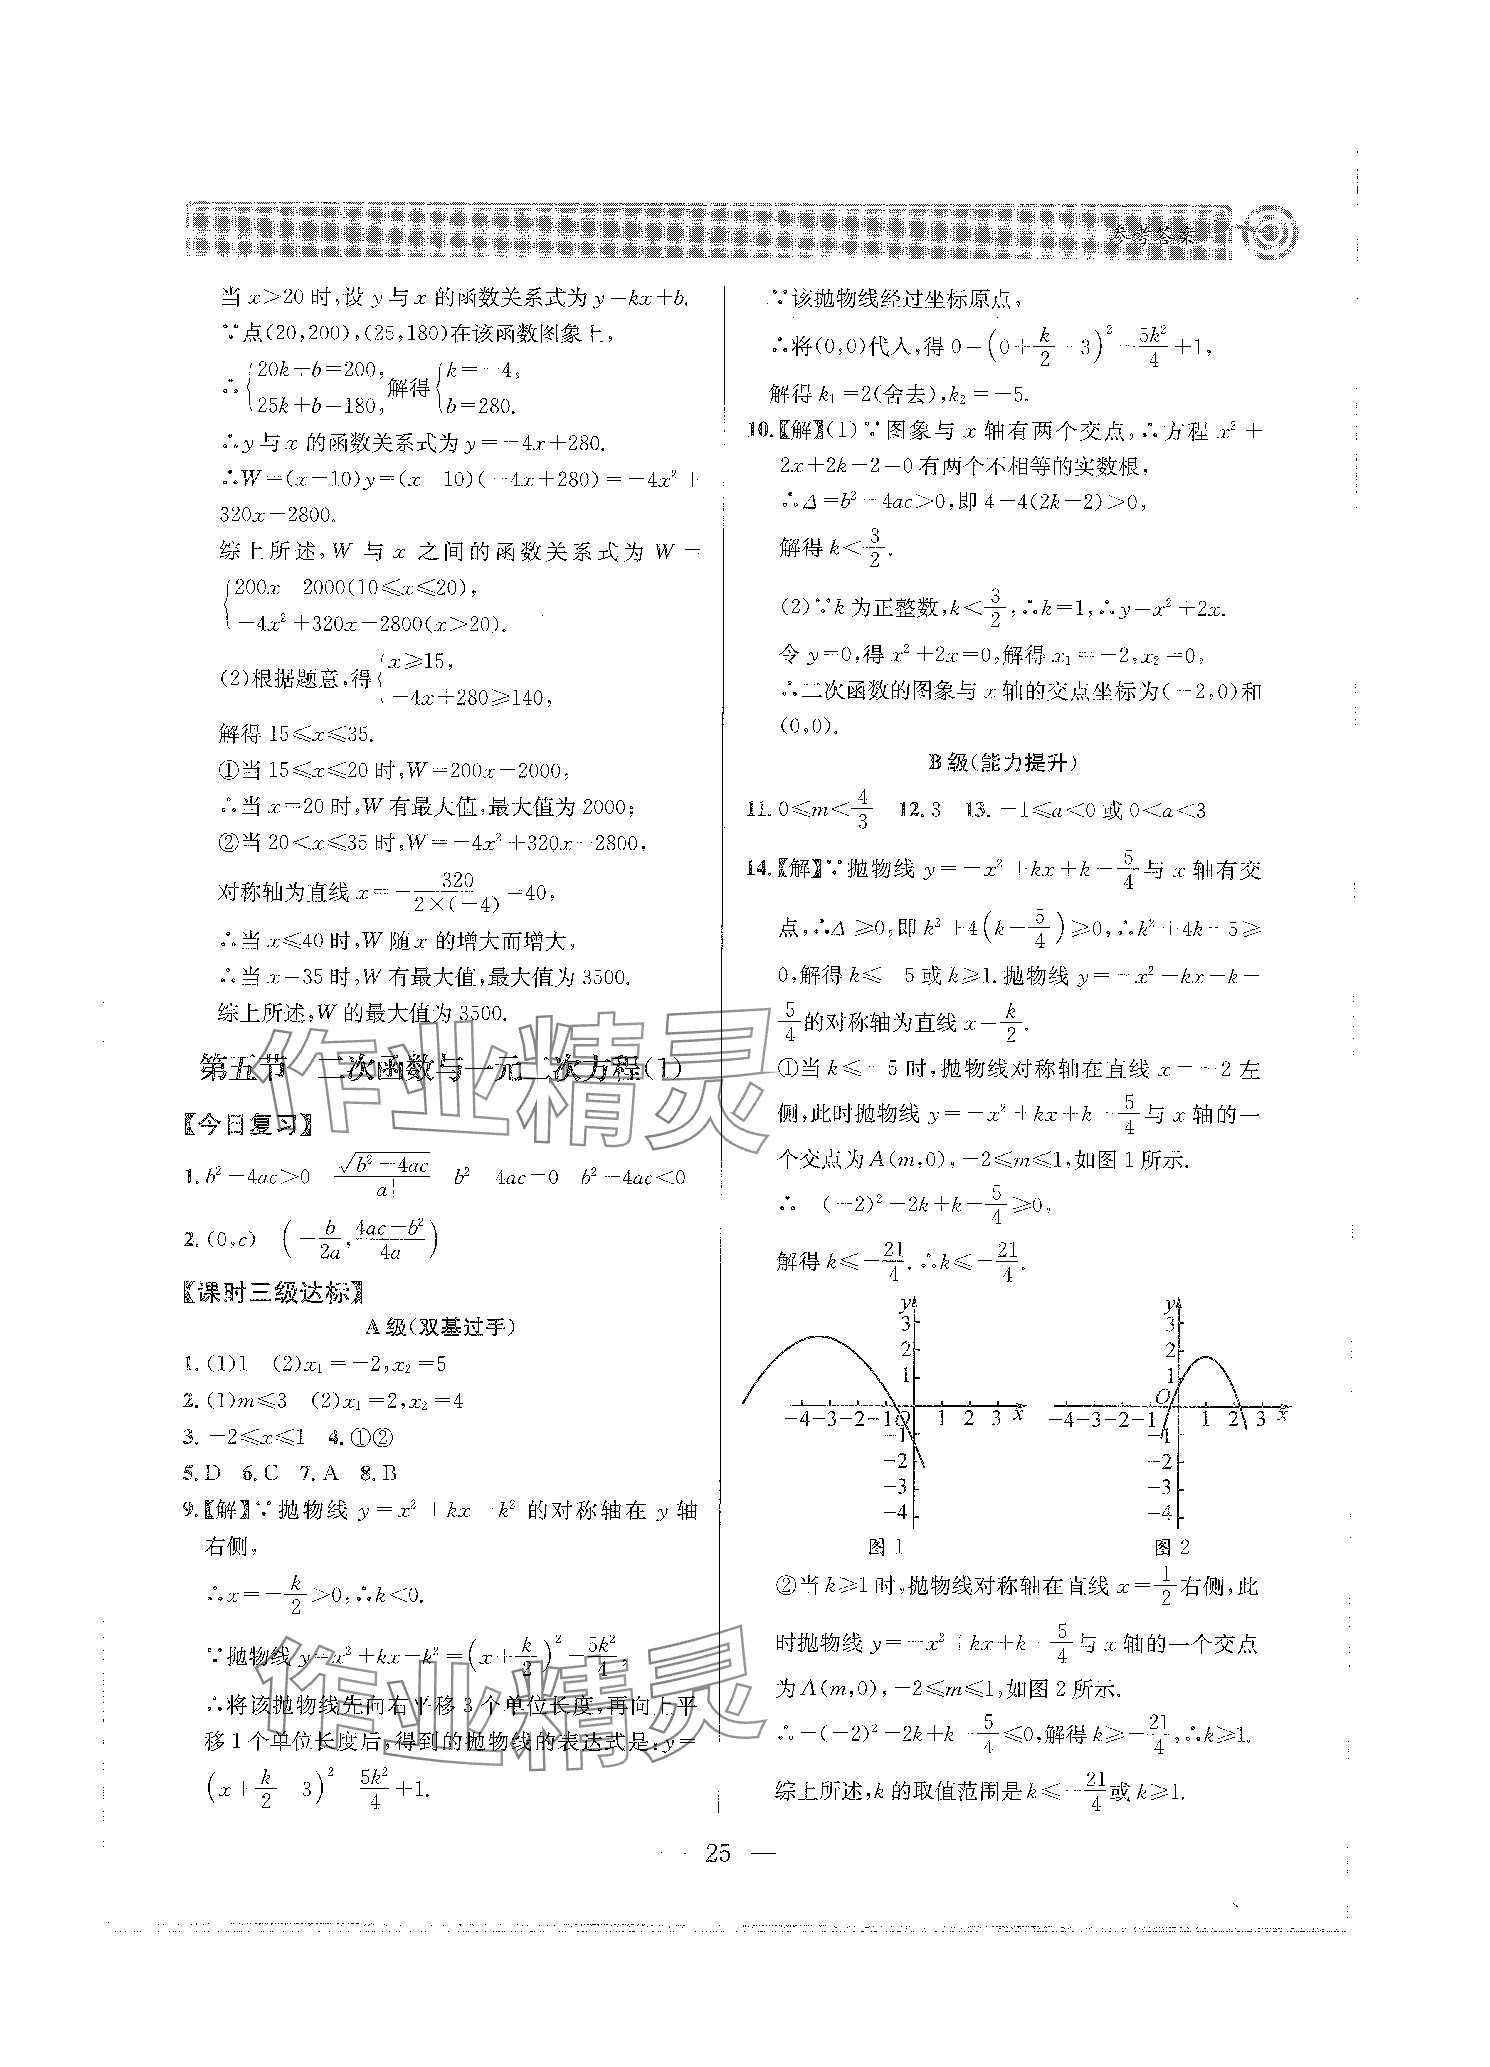 参考答案
当 x>20 时,设 y 与 x 的函数关系式为 y=kx+b.
∵点(20,200),(25,180)在该函数图象上,
∴{20k+b=200, 25k+b=180, 解得{k=-4, b=280.
∴y 与 x 的函数关系式为 y=-4x+280.
∴W=(x-10)y=(x-10)(-4x+280)=-4x²+
320x-2800.
综上所述,W 与 x 之间的函数关系式为 W=
{200x-2000(10≤x≤20),
-4x²+320x-2800(x>20).
(2)根据题意,得{x≥15, -4x+280≥140,
解得 15≤x≤35.
①当 15≤x≤20 时,W=200x-2000,
∴当 x=20 时,W 有最大值,最大值为 2000;
②当 20<x≤35 时,W=-4x²+320x-2800,
对称轴为直线 x=-320/(2×(-4))=40,
∴当 x≤40 时,W 随 x 的增大而增大,
∴当 x=35 时,W 有最大值,最大值为 3500.
综上所述,W 的最大值为 3500.
第五节 二次函数与一元二次方程(1)
【今日复习】
1. b²-4ac>0 √(b²-4ac)/|a| b²-4ac=0 b²-4ac<0
2. (0,c) (-b/2a, (4ac-b²)/4a)
【课时三级达标】
A 级(双基过手)
1. (1)1 (2)x₁=-2,x₂=5
2. (1)m≤3 (2)x₁=2,x₂=4
3. -2≤x≤1 4. ①②
5. D 6. C 7. A 8. B
9.【解】∵抛物线 y=x²+kx-k² 的对称轴在 y 轴
右侧,
∴x=-k/2>0,∴k<0.
∵抛物线 y=x²+kx-k²=(x+k/2)²-5k²/4,
∴将该抛物线先向右平移 3 个单位长度,再向上平
移 1 个单位长度后,得到的抛物线的表达式是:y=
(x+k/2-3)²-5k²/4+1.
∵该抛物线经过坐标原点,
∴将(0,0)代入,得 0=(0+k/2-3)²-5k²/4+1,
解得 k₁=2(舍去),k₂=-5.
10.【解】(1)∵图象与 x 轴有两个交点,∴方程 x²+
2x+2k-2=0 有两个不相等的实数根,
∴Δ=b²-4ac>0,即 4-4(2k-2)>0,
解得 k<3/2.
(2)∵k 为正整数,k<3/2,∴k=1,∴y=x²+2x.
令 y=0,得 x²+2x=0,解得 x₁=-2,x₂=0,
∴二次函数的图象与 x 轴的交点坐标为(-2,0)和
(0,0).
B 级(能力提升)
11. 0≤m<4/3 12. 3 13. -1≤a<0 或 0<a<3
14.【解】∵抛物线 y=-x²+kx+k-5/4 与 x 轴有交
点,∴Δ≥0,即 k²+4(k-5/4)≥0,∴k²+4k-5≥
0,解得 k≤-5 或 k≥1. 抛物线 y=-x²-kx-k-
5/4 的对称轴为直线 x=k/2.
①当 k≤-5 时,抛物线对称轴在直线 x=-2 左
侧,此时抛物线 y=-x²+kx+k-5/4 与 x 轴的一
个交点为 A(m,0),-2≤m≤1,如图 1 所示.
∴-(-2)²-2k+k-5/4≥0,
解得 k≤-21/4. ∴k≤-21/4.
y 3 2 1 -4 -3 -2 -1 O 1 2 3 x -1 -2 -3 -4
图 1
y 3 2 1 O -4 -3 -2 -1 1 2 3 x -1 -2 -3 -4
图 2
②当 k≥1 时,抛物线对称轴在直线 x=1/2 右侧,此
时抛物线 y=-x²+kx+k-5/4 与 x 轴的一个交点
为 A(m,0),-2≤m≤1,如图 2 所示.
∴-(-2)²-2k+k-5/4≤0,解得 k≥-21/4,∴k≥1.
综上所述,k 的取值范围是 k≤-21/4 或 k≥1.
— 25 —
作业精灵
作业精灵